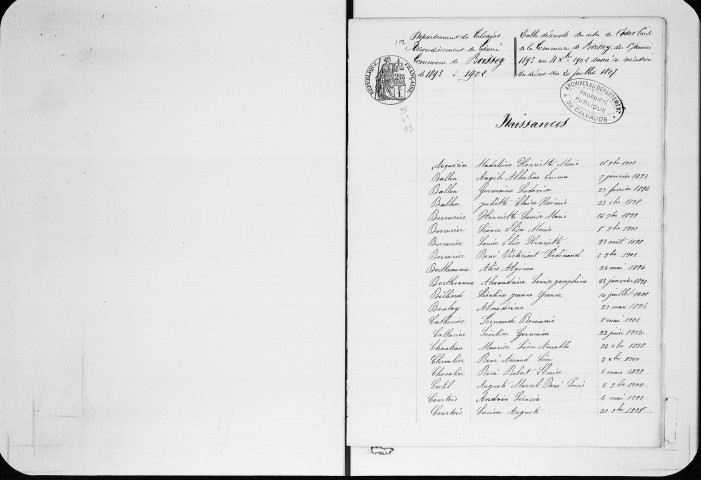 Département du Calvados
Arrondissement de Lisieux
Commune de Boissey
de 1893 à 1902
Table décennale des actes de l'état civil
de la Commune de Boissey, du 1er janvier
1893 au 31 Xbre 1902, dressée en exécution
du décret du 20 juillet 1807
RÉPUBLIQUE FRANÇAISE
ARCHIVES DU DÉPARTEMENT
PROPRIÉTÉ
PUBLIQUE
DU CALVADOS
Naissances
Madeleine Henriette Marie 15 9bre 1900
Ballon Angèle Albertine Emma 7 janvier 1893
Ballon Germaine Ludovia 27 février 1896
Ballon Juliette Claire Noémie 23 Xbre 1898
Berrurier Henriette Louise Marie 16 9bre 1899
Berrurier Léonce Elisa Marie 5 9bre 1900
Berrurier Louise Elise Henriette 29 août 1898
Berrurier René Victorient Ferdinand 2 9bre 1901
Bertheaume Alice 26 mai 1894
Bertheaume Alexandrine Louise Joséphine 23 janvier 1898
Billard Léontine Jeanne Yvonne 14 juillet 1900
Boulay 21 mai 1896
Catherine Fernande 8 mai 1901
Catherine Léontine Germaine 22 juin 1902
Maurice Léon Amable 24 Xbre 1898
Chevalier René Amand Léon 2 Xbre 1900
Chevalier René Robert 6 mars 1899
Costil Auguste Marcel René Louis 8 9bre 1900
Courtois Andrée 4 mai 1901
Courtois Lucien Auguste 20 9bre 1898